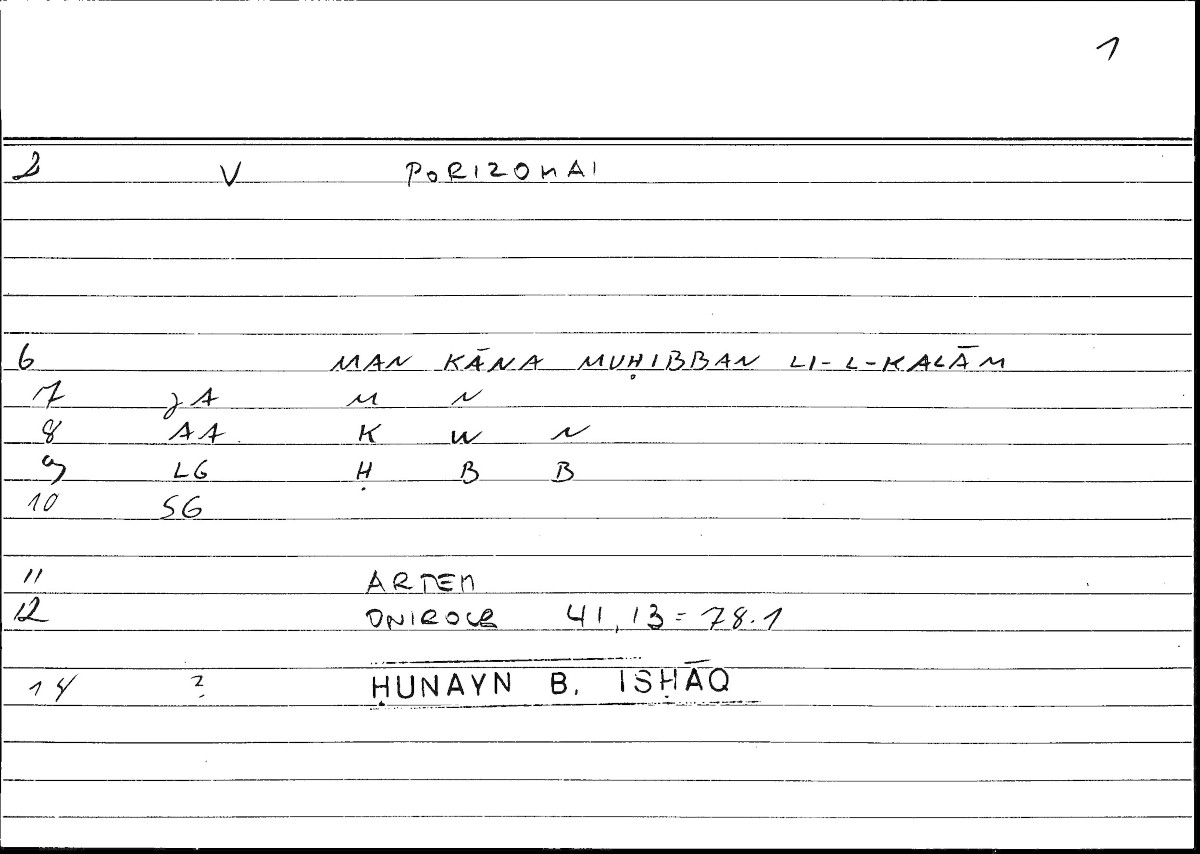 1
2 V PORIZOMAI
6 MAN KĀNA MUḤIBBAN LI-L-KALĀM
7 JA M N
8 AA K W N
9 LG Ḥ B B
10 SG
11 ARTEM
12 ONIROCR 41,13 = 78.1
14 ? ḤUNAYN B. ISḤĀQ